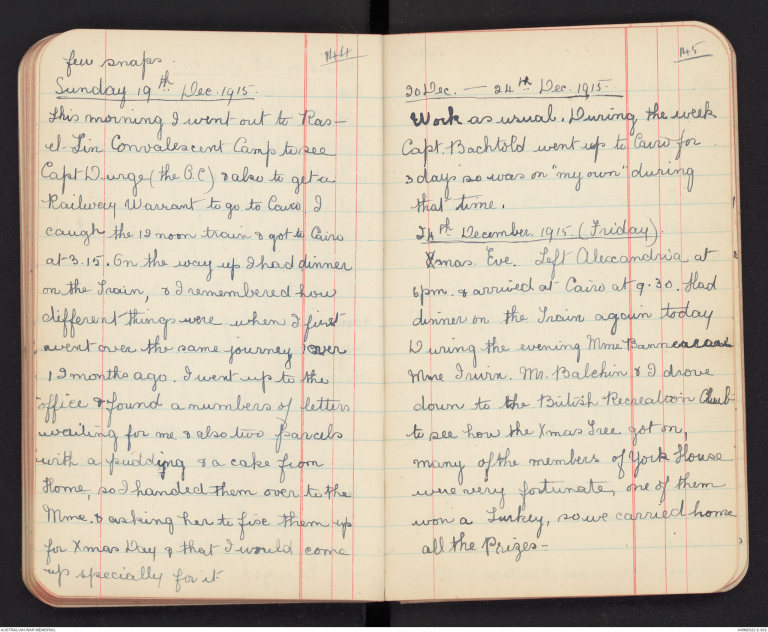 144
few snaps.
Sunday 19th Dec. 1915.
This morning I went out to Ras-
el-Tin Convalescent Camp to see
Capt Durge (the O.C) & also to get a
Railway Warrant to go to Cairo. I
caugh the 12 noon train & got to Cairo
at 3.15. On the way up I had dinner
on the Train, & I remembered how
different things were when I first
went over the same journey over
12 months ago. I went up to the
office & found a numbers of letters
waiting for me & also two parcels
with a pudding & a cake from
Home, so I handed them over to the
Mme. & asking her to fix them up
for Xmas Day & that I would come
up specially for it
145
20 Dec. — 24th Dec. 1915.
Work as usual. During the week
Capt. Bachtold went up to Cairo for
3 days so was on "my own" during
that time.
24th December. 1915 (Friday).
Xmas. Eve. Left Alexandria at
6pm. & arrived at Cairo at 9.30. Had
dinner on the Train again today
During the evening Mme
Mme Irwin. Mr. Balchin & I drove
down to the British Recreation Club
to see how the Xmas Tree got on,
many of the members of York House
were very fortunate, one of them
won a Turkey, so we carried home
all the Prizes-
AUSTRALIAN WAR MEMORIAL